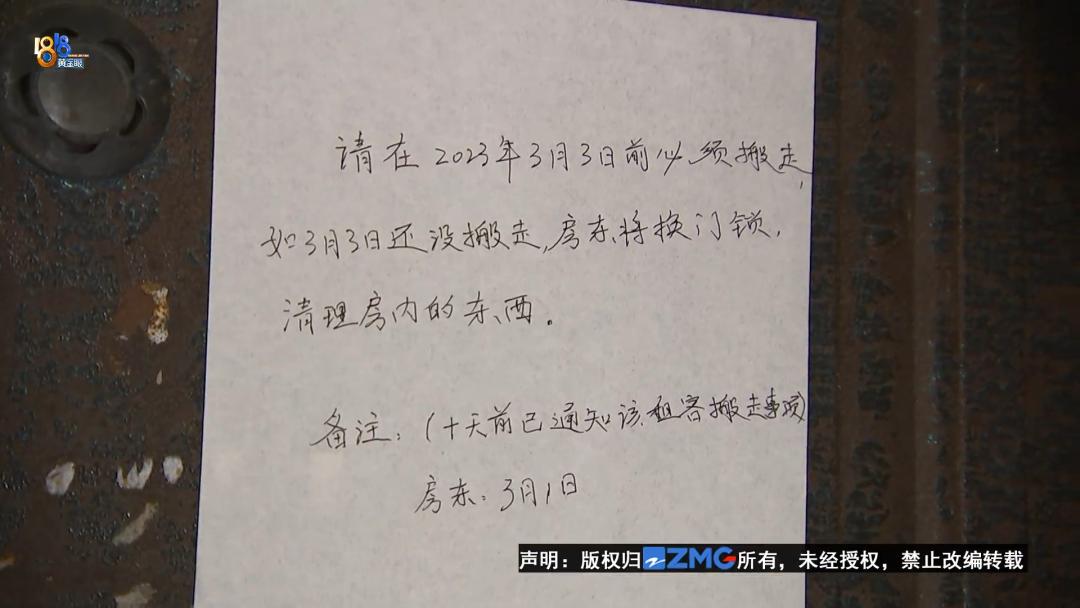 1818
黄金眼
请在2023年3月3日前必须搬走,
如3月3日还没搬走,房东将换门锁,
清理房内的东西。
备注:(十天前已通知该租客搬走事项)
房东:3月1日
声明:版权归ZMG所有,未经授权,禁止改编转载